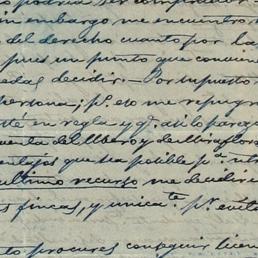 sin embargo me encuentro
del derecho cuanto por la
pues un punto que conviene
decidir.— Por supuesto
persona; pr. eto me repugn
en regla y q. asi lo parezca
cuenta del Ubero y de Miraflores
que sea posible pa.
ultimo recurso me decidiri
fincas, y unicate. pr. evita
to procures conseguir licen